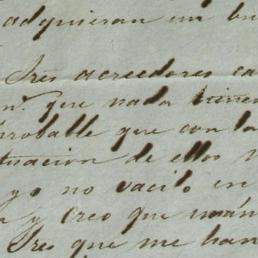 adquieran un bu
Tres acreedores ca
nº. que nada tienen
probable que con la
tuacion de ellos
yo no vacilo en
y creo que
Tres que me han